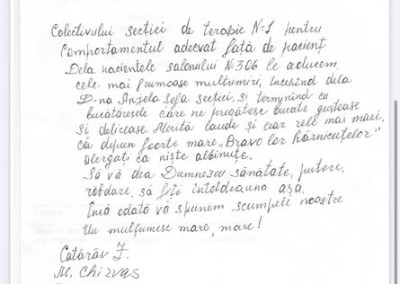 Colectivului secției de terapie N-1 pentru
Comportamentul adecvat față de pacient
Dela pacientele salonului N306 le aducem
cele mai frumoase mulțumiri, începînd dela
D-na Angela Șefa secției, și terminînd cu
bucătăresele care ne pregătesc bucate gustoase
Și delicioase. Merită laude și cear cele mai mari,
că depun foarte mare, "Bravo lor hărnicuțelor"
alergați ca niște albinuțe.
Să vă dea Dumnezeu sănătate, putere,
răbdare, să fiți întotdeauna așa.
Încă odată vă spunem scumpele noastre
Un mulțumesc mare, mare!
Catărău J.
M. Chirvas